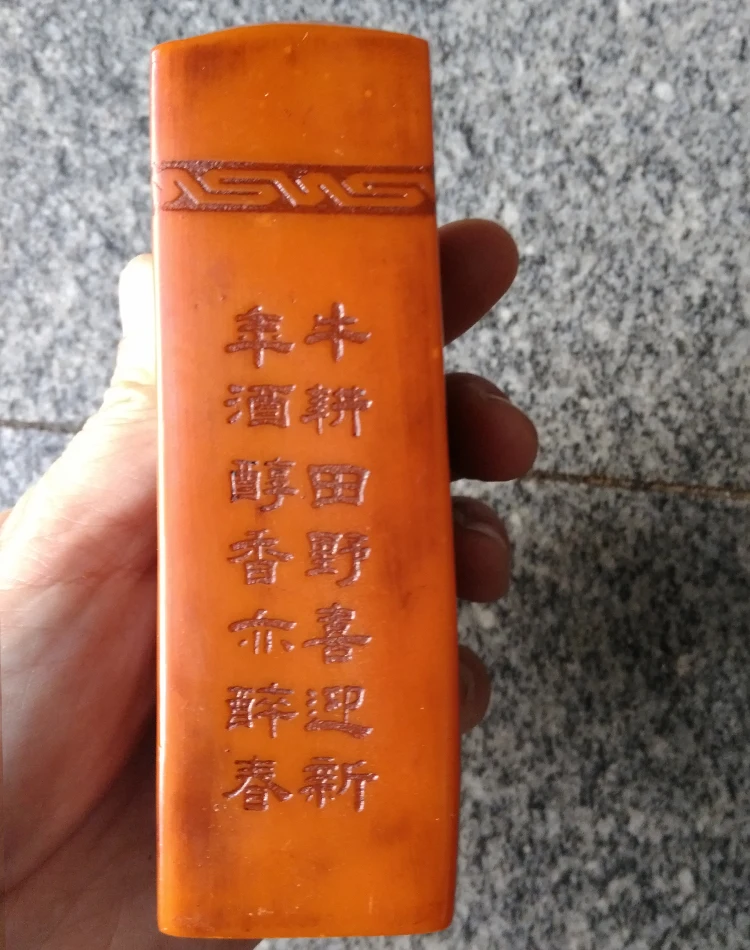 牛耕田野喜迎新
年酒醇香亦醉春